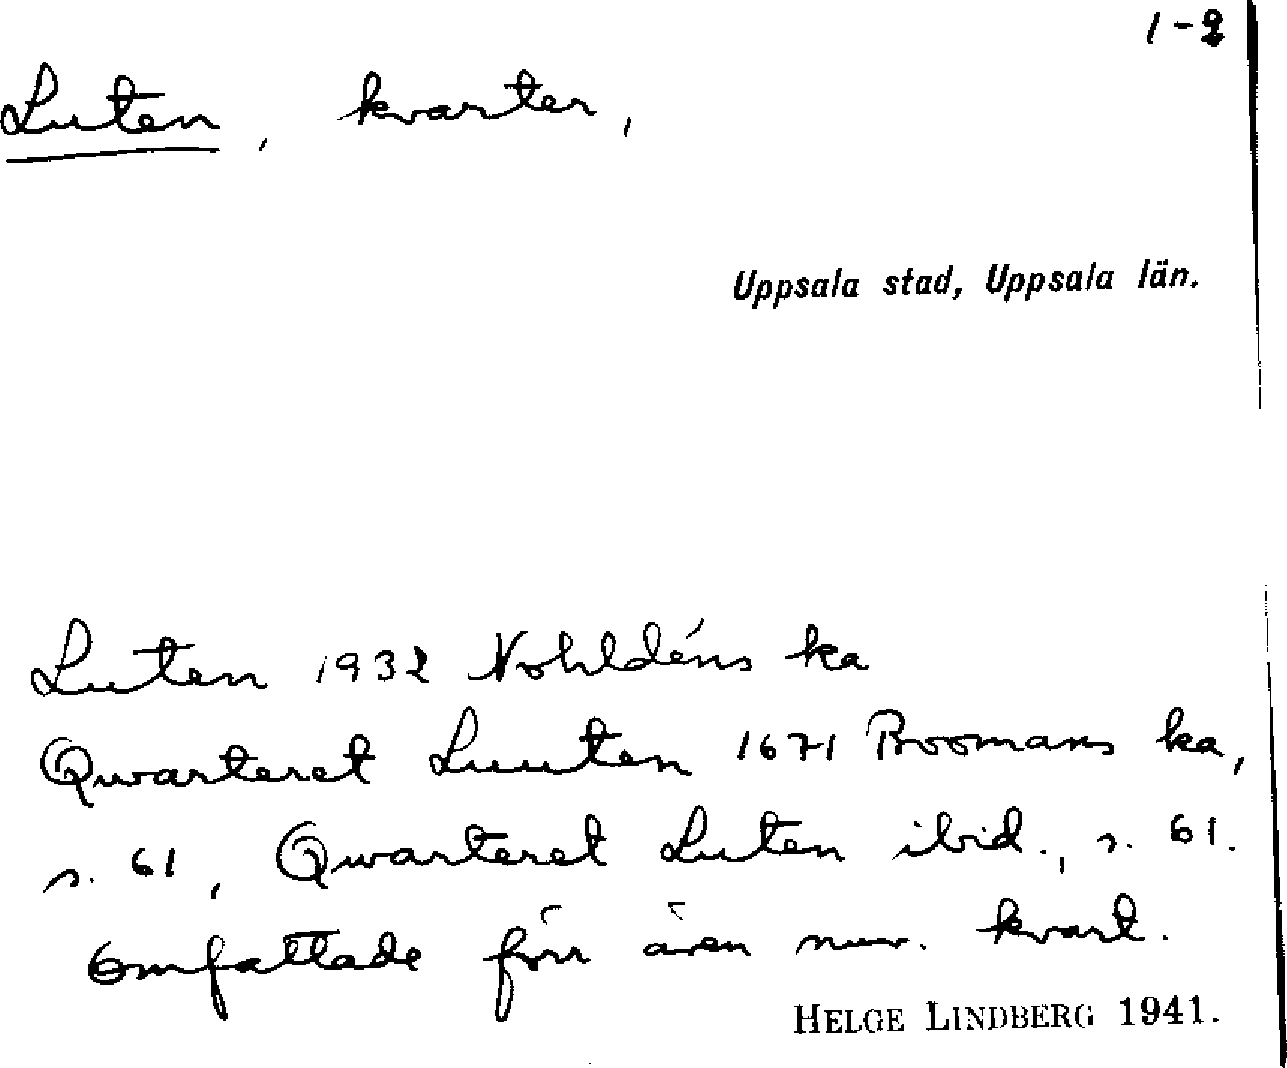 1-2
Luten, kvarter,
Uppsala stad, Uppsala län.
Luten 1932 Nohldéns ka
Qwarteret Luuten 1671 Broomans ka,
s. 61, Qwarteret Luten ibid., s. 61.
Omfattade förr även nuv. kvart.
HELGE LINDBERG 1941.